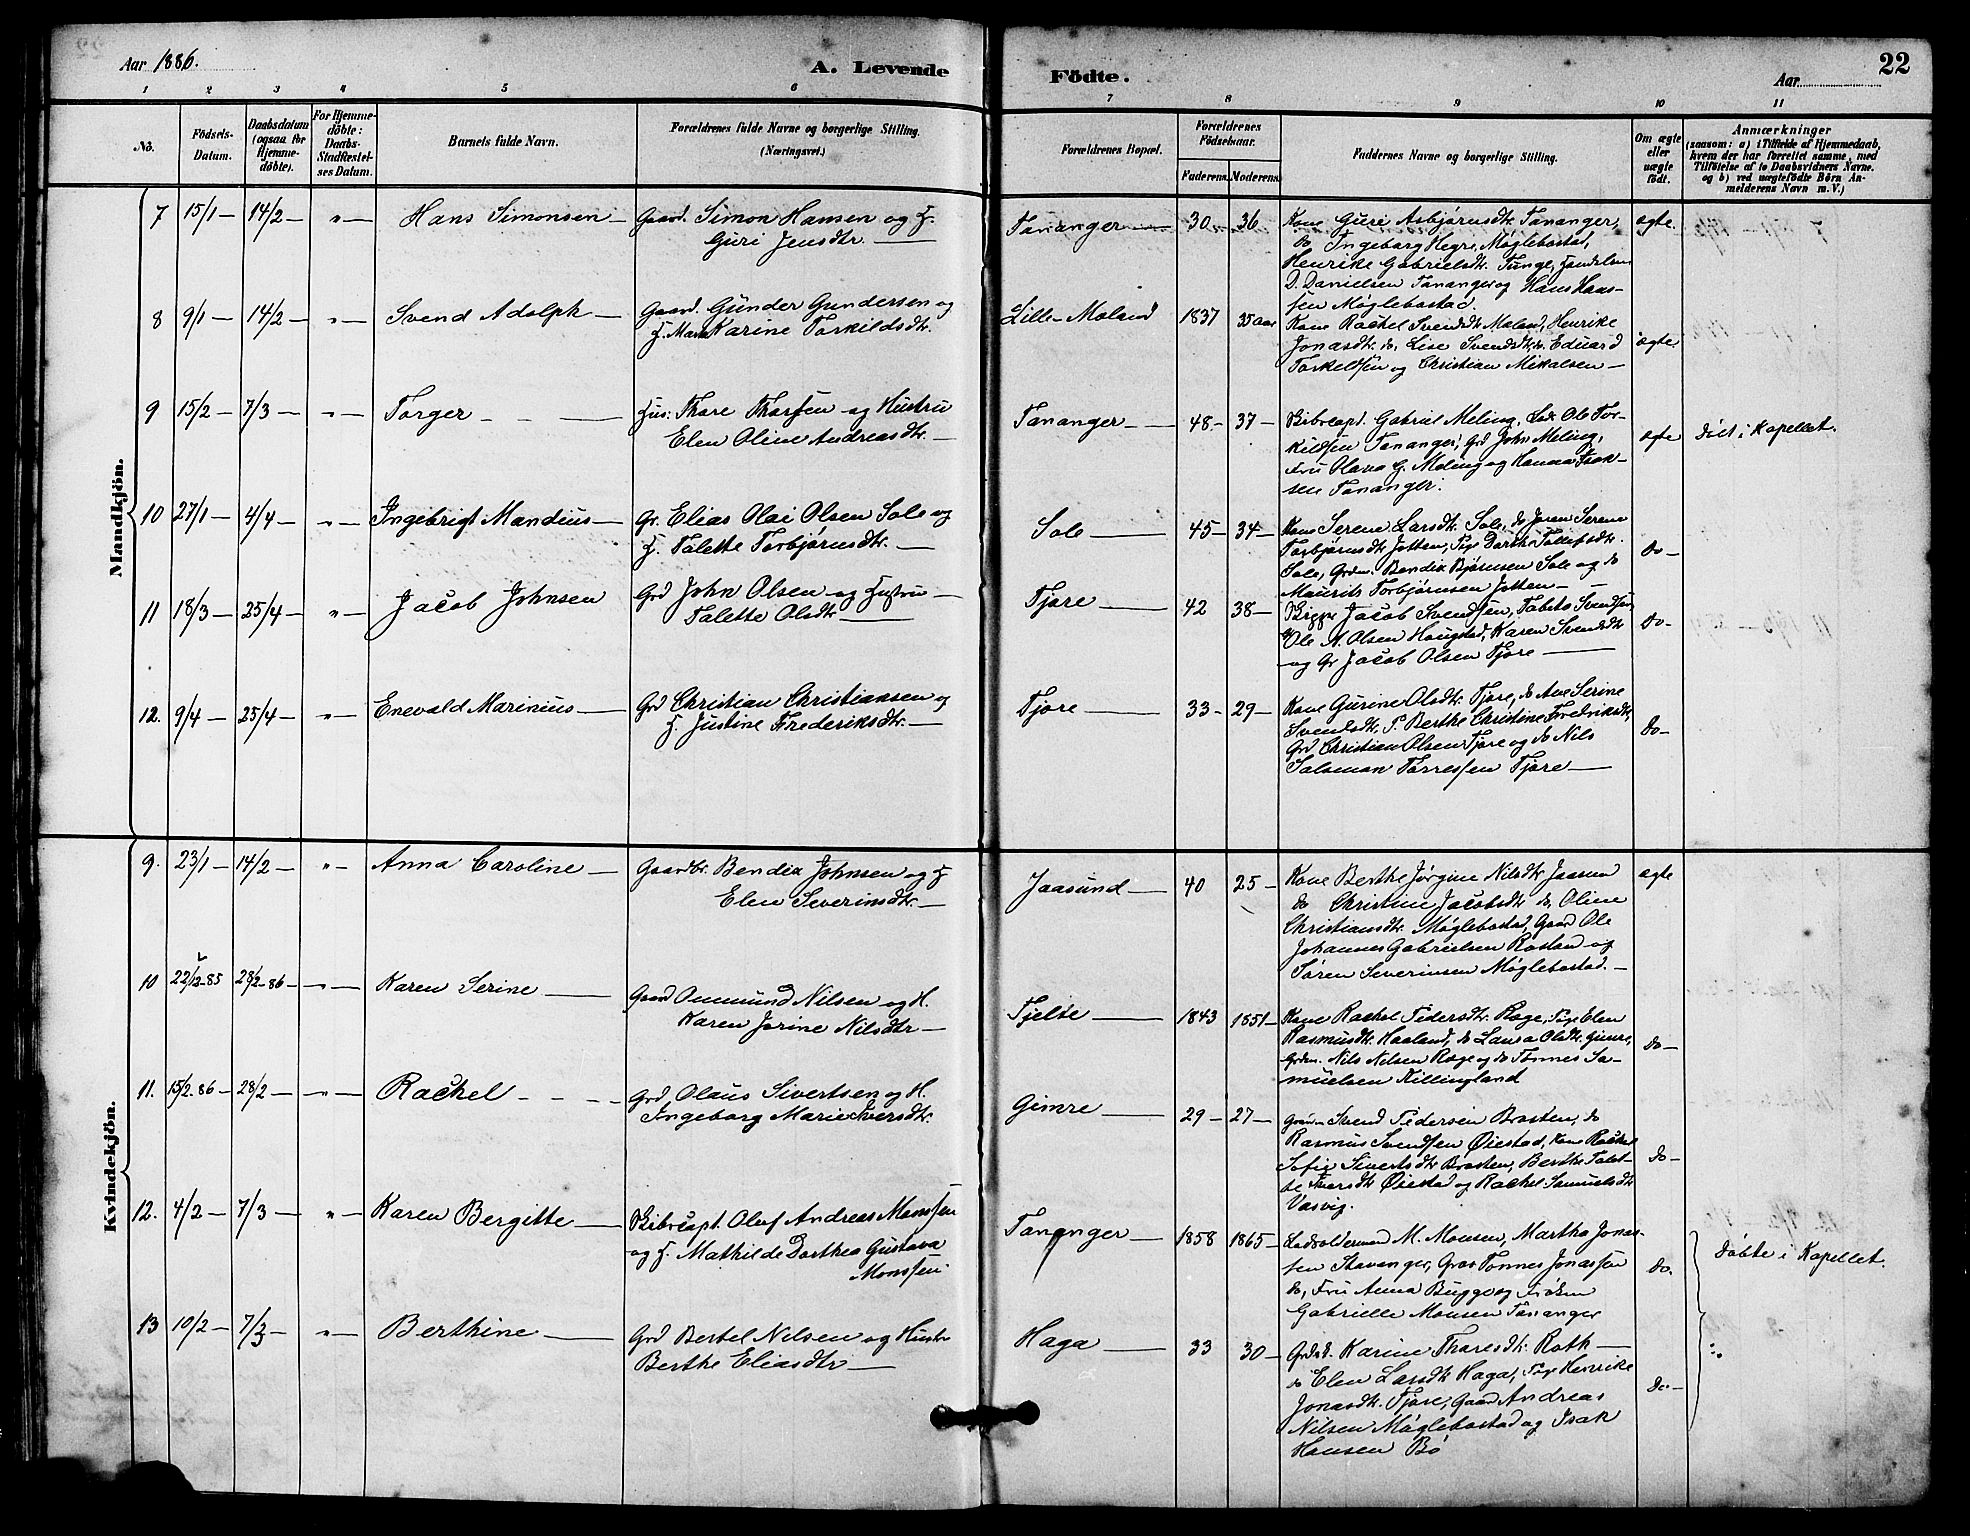 Aar 1886.
A. Levende
Födte.
Aar
22
1 2 3 4 5 6 7 8 9 10 11
No.
Födsels-
Datum.
Daabsdatum
(ogsaa for
Hjemme-
døbte).
For Hjemme-
døbte:
Daabs-
Stadfæstel-
ses Datum.
Barnets fulde Navn.
Forældrenes fulde Navne og borgerlige Stilling.
(Næringsvei.)
Forældrenes Bopæl.
Forældrenes
Födselsaar.
Faderens. Moderens.
Faddernes Navne og borgerlige Stilling.
Om ægte
eller
uægte
født.
Anmærkninger
(saasom: a) i Tilfælde af Hjemmedaab,
hvem der har forrettet samme, med
Tilføielse af to Daabsvidners Navne.
og b) ved uægtefødte Børn An-
melderens Navn m.V.)
Mandkjön.
7 15/1 14/2 " Hans Simonsen Gaard. Simon Hansen og H.
Guri Jensdtr. Tananger 30 36 Kone Guri Asbjørnsdtr. Tananger,
do Ingeborg Hegre, Møglebostad,
Henrike Gabrielsdtr. Tunge,
D. Danielsen Tananger og Hans Haas-
sen Møglebostad. ægte
8 9/1 14/2 " Svend Adolph Gaard. Gunder Gundersen og
H. Karine Torkildsdtr. Lille-Moland 1837 35 aar Kone Rachel Svendsdtr. Moland, Henrike
Jonasdtr. do, Lise Svendsdtr. do, Eduard
Torkeldsen og Christian Mikalsen ægte
9 15/2 7/3 " Torger Hus: Thore Thorsen og Hustru
Elen Oline Andreasdtr. Tananger 48 37 Skibscapt. Gabriel Meling, Ole Tor-
kildsen Tananger, Grd John Meling,
Fru Olava G. Meling og Hanna Isak-
sen Tananger. ægte døbt i Kapellet.
10 27/1 4/4 " Ingebrigt Mandius Gr. Elias Olai Olsen Sole og
H. Talette Torbjørnsdtr. Sole 45 34 Kone Serene Larsdtr. Sole, do Joren Serene
Torbjørnsdtr. Jotten, Pige Dorthe Tollefsdtr.
Sole, Grdm. Bendix Bjørnsen Sole og do
Maurits Torbjørnsen Jotten Do
11 18/3 25/4 " Jacob Johnsen Grd John Olsen og Hustru
Talette Olsdtr. Tjore 42 38 Jacob Svendsen, Tobits Svendsen
Ole N. Olsen Haugstad, Karen Svendsdtr.
og Gr Jacob Olsen Tjore Do
12. 9/4 25/4 " Enevald Marinius Grd Christian Christiansen og
H. Justine Frederiksdtr. Tjore 33 29 Kone Gurine Olsdtr. Tjore, do Ane Serine
Svendsdtr, P. Berthe Christine Fredriksdtr,
Grd Christian Olsen Tjore og do Nils
Salomon Torressen Tjore Do
Kvindekjön.
9. 23/1 14/2 " Anna Caroline Gaardbr. Bendix Johnsen og H
Elen Severinsdtr. Jaasund 40 25 Kone Berthe Jørgine Nilsdtr. Jaasund
do Christine Jacobsdtr. do, Oline
Christiansdtr. Møglebostad, Gaard Ole
Johannes Gabrielsen Rosland og
Søren Severinsen Møglebostad. ægte
10 22/12-85 28/2-86 " Karen Serine Gaard Ommund Nilsen og H.
Karen Jorine Nilsdtr Tjelte 1843 1851 Kone Rachel Pedersdtr. Ræge, Pige Elen
Rasmusdtr. Haaland, do Laura Olsdtr. Gimre,
Grdm. Nils Nilsen Ræge og do Tønnes Sa-
muelsen Killingland Do
11. 15/2.86 28/2 " Rachel Grd Olaus Sivertsen og H.
Ingeborg Marie Iversdtr. Gimre 29 27 Svend Pedersen Brosten, do
Rasmus Svendsen Øiestad, Kone Rachel
Sofie Sivertsdtr Brosten, Berthe Talet-
te Iversdtr. Øiestad og Rachel Samuelsdtr.
Vasvig. Do
12. 4/2 7/3 " Karen Bergitte Skibscapt. Oluf Andreas Monssen
og H. Mathilde Dorthea Gustava
Monssen Tananger 1858 1865 Lodsoldermand M. Monsen, Martha Jonas-
sen Stavanger, Tønnes Jonassen
do, Fru Anna Bugge og Frøken
Gabrielle Monsen Tananger Do. døbte i Kapellet.
13 10/2 7/3 " Berthine Grd Bertel Nilsen og Hustr
Berthe Eliasdtr Haga 33 30 Karine Thoresdtr. Roth
do Elen Larsdtr Haga, Pige Henrike
Jonasdtr. Tjore, Gaard Andreas
Nilsen Møglebostad og Isak
Hansen Bø Do